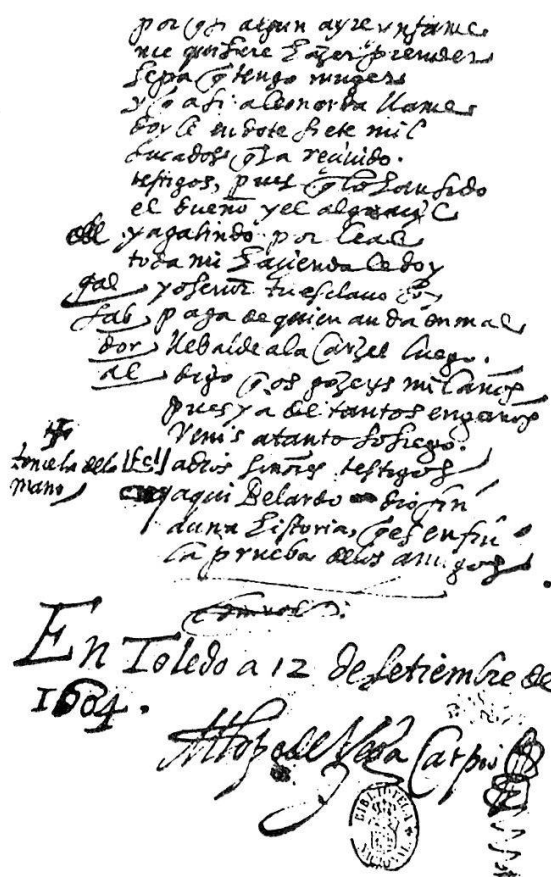 por q̃ si algun ayre ynfame
me quisiere hazer prender
sepa q̃ tengo muger
y q̃ asi a leonarda llame
dorle en dote siete mil
ducados q̃ la reciuido.
testigos, pues q̃ lo han sido
el dueño y el alguaçil
y a galindo por leal
toda mi hacienda le doy
gal yo señor tu esclavo soy
fab paga de quien anda en mal
dor llebalde a la carzel luego.
al digo q̃ os gozeys mil años
pues ya de tantos engaños
venis a tanto sosiego.
tome la de la mano [Fs!] adios señores testigos
y aqui Belardo dio fin
a una historia, q̃ es en fin
la prueba de los amigos
En Toledo a 12 de setiembre de
1604.
Lope de Vega Carpio
BIBLIOTECA NACIONAL